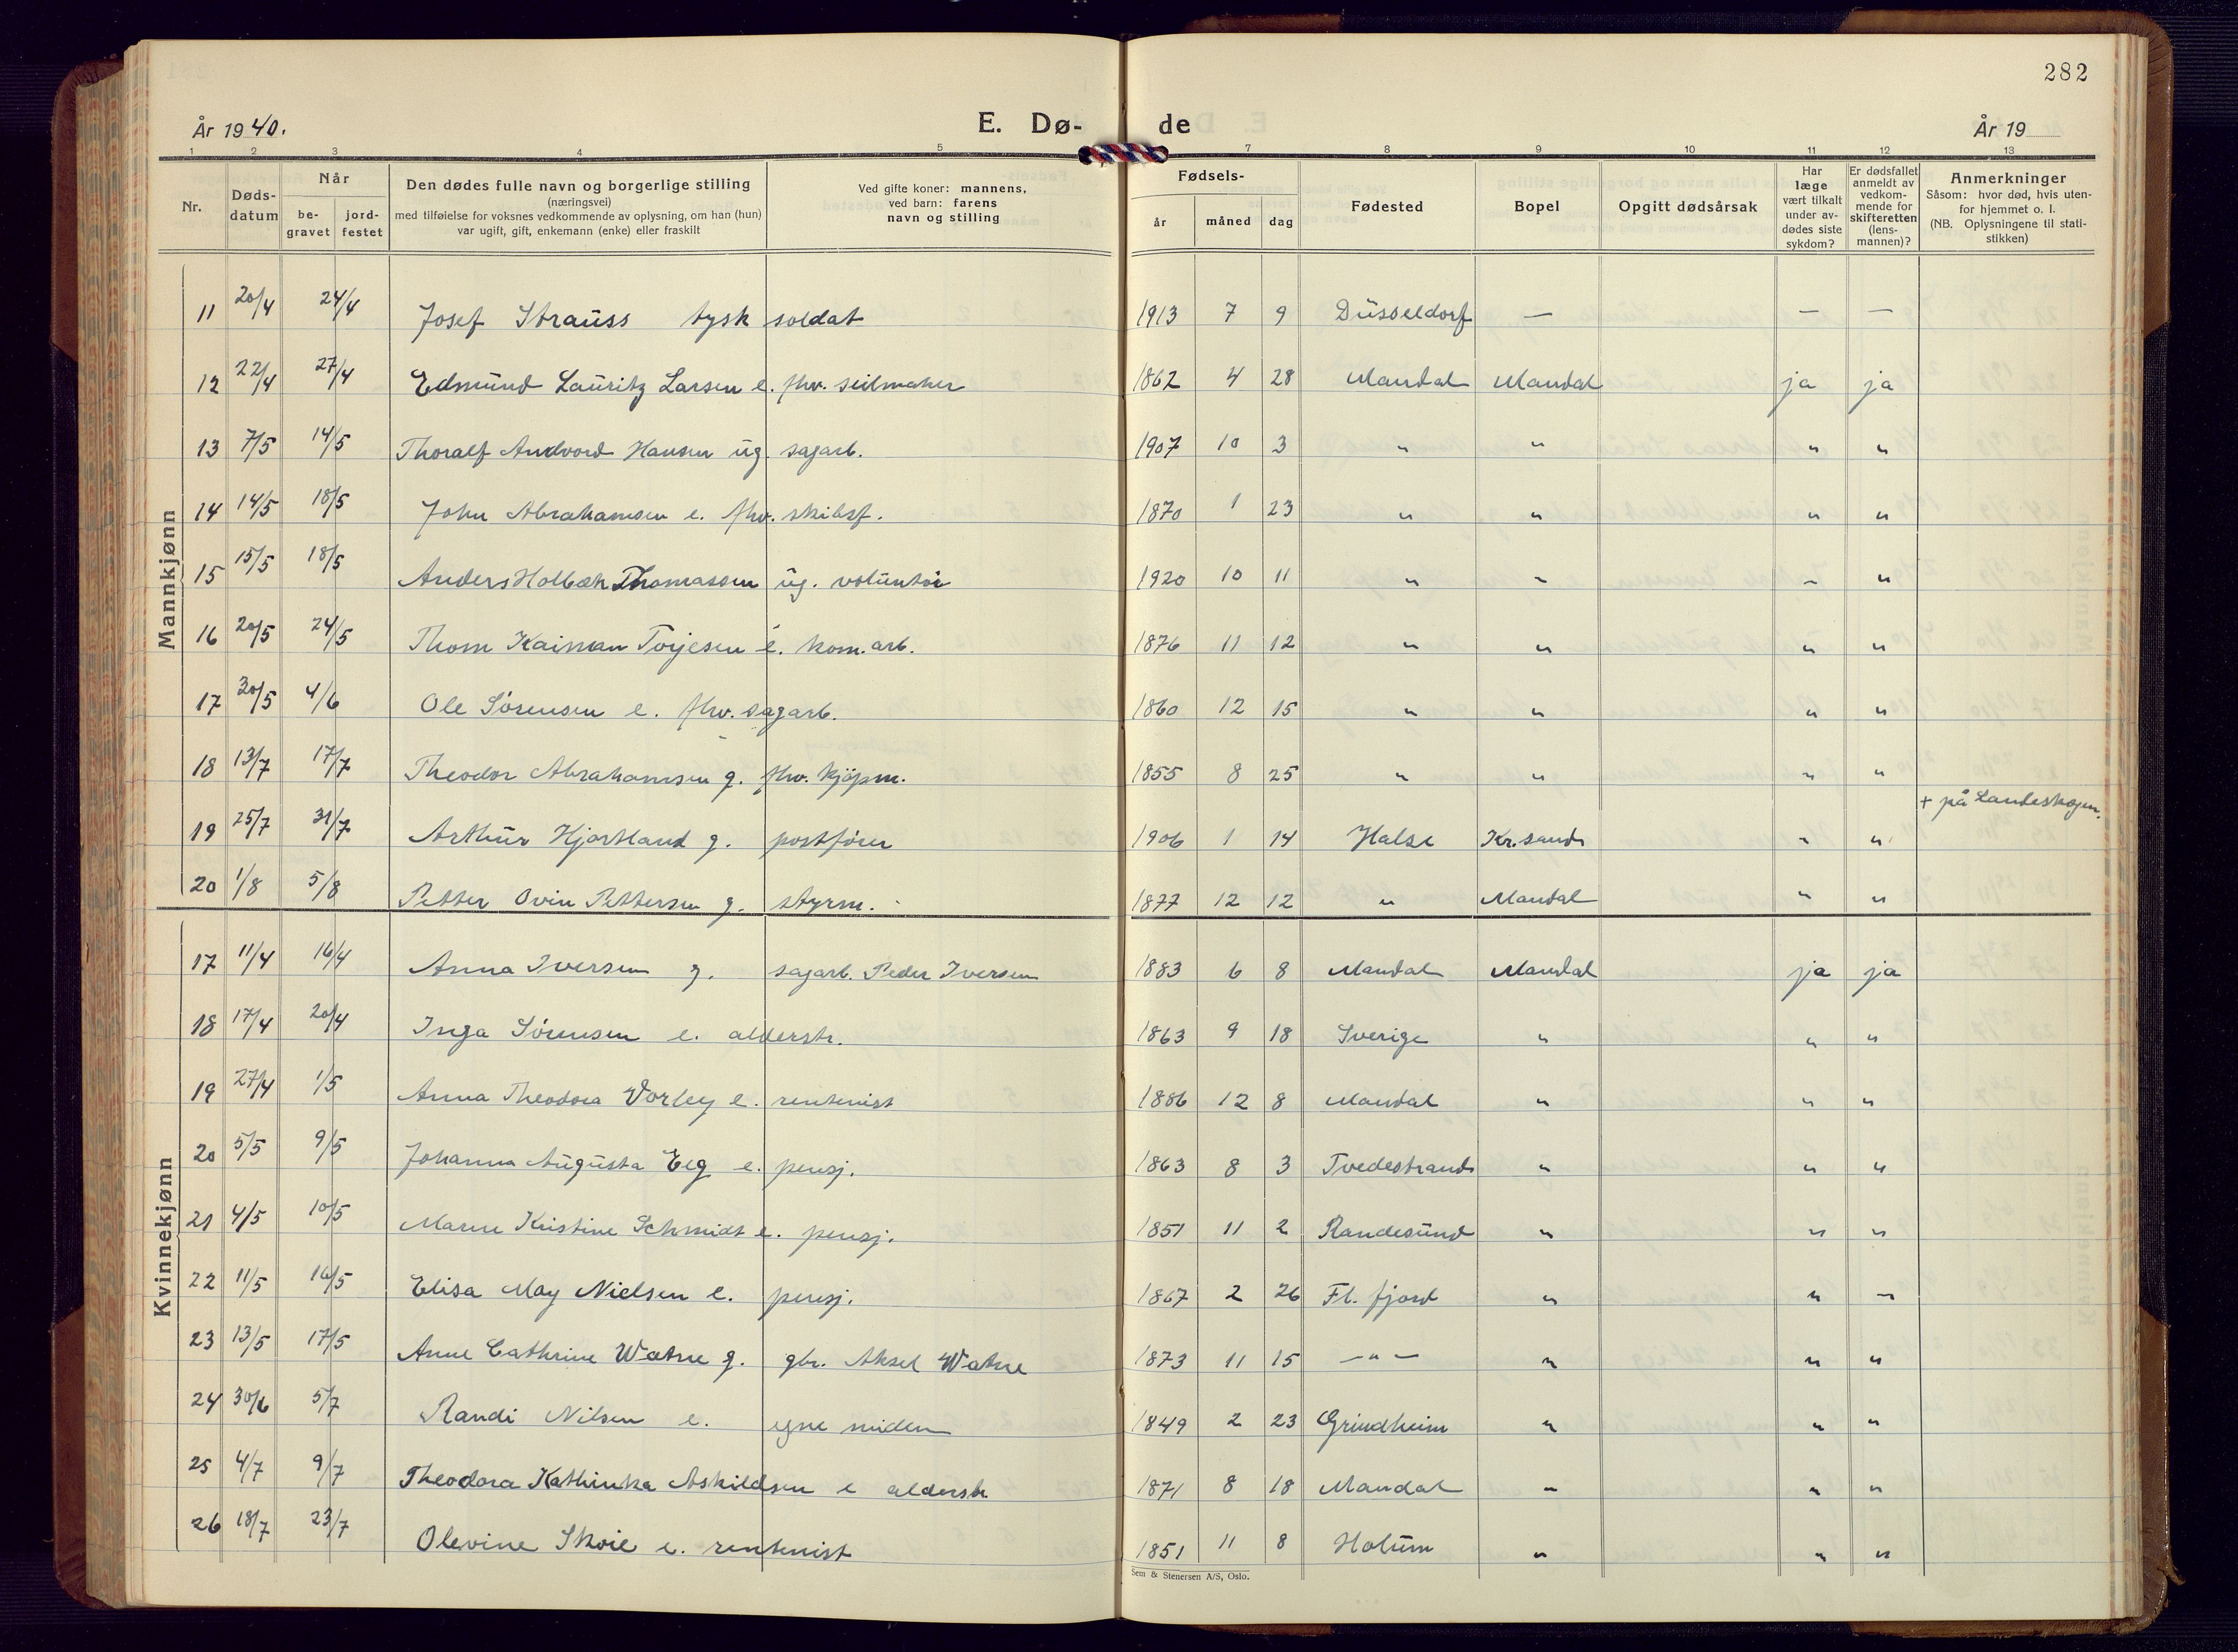 282
År 1940. E. Dø- de År 19
1 2 3 4 5 7 8 9 10 11 12 13
Nr. Døds-datum Når be-gravet jord-festet Den dødes fulle navn og borgerlige stilling (næringsvei) med tilføielse for voksnes vedkommende av oplysning, om han (hun) var ugift, gift, enkemann (enke) eller fraskilt Ved gifte koner: mannens, ved barn: farens navn og stilling Fødsels- år måned dag Fødested Bopel Opgitt dødsårsak Har læge vært tilkalt under av-dødes siste sykdom? Er dødsfallet anmeldt av vedkom-mende for skifteretten (lens-mannen)? Anmerkninger Såsom: hvor død, hvis uten-for hjemmet o. l. (NB. Oplysningene til stati-stikken)
Mannkjønn
11 20/4 24/4 Josef Strauss tysk soldat 1913 7 9 Düsseldorf — — —
12 22/4 27/4 Edmund Lauritz Larsen e. fhv. seilmaker 1862 4 28 Mandal Mandal ja ja
13 7/5 14/5 Thoralf Andvord Hansen ug. sagarb. 1907 10 3 " " " "
14 14/5 18/5 John Abrahamsen e. fhv. skibsf. 1870 1 23 " " " "
15 15/5 18/5 Anders Holbæk Thomassen ug. voluntør 1920 10 11 " " " "
16 20/5 24/5 Thom Kaiman Torjesen e. kom. arb. 1876 11 12 " " " "
17 30/5 4/6 Ole Sörensen e. fhv. sagarb. 1860 12 15 " " " "
18 13/7 17/7 Theodor Abrahamsen g. fhv. kjöpm. 1855 8 25 " " " "
19 25/7 31/7 Arthur Hjortland g. postförer 1906 1 14 Halse Kr.sand " " + på Landeskogen.
20 1/8 5/8 Petter Ovin Pettersen g. styrm. 1877 12 12 " Mandal " "
Kvinnekjønn
17 11/4 16/4 Anna Iversen g. sagarb. Peder Iversen 1883 6 8 Mandal Mandal ja ja
18 17/4 20/4 Inga Sörensen e. alderstr. 1863 9 18 Sverige " " "
19 27/4 1/5 Anna Theodora Vorley e. rentenist 1886 12 8 Mandal " " "
20 5/5 9/5 Johanna Augusta Eeg e. pensj. 1863 8 3 Tvedestrand " " "
21 4/5 10/5 Maren Kristine Schmidt e. pensj. 1851 11 2 Randesund " " "
22 11/5 16/5 Elisa May Nielsen e. pensj. 1867 2 26 Fl. fjord " " "
23 13/5 17/5 Anne Cathrine Watne g. gbr. Aksel Watne 1873 11 15 — " — " " "
24 30/6 5/7 Randi Nilsen e. egne midler 1849 2 23 Grindheim " " "
25 4/7 9/7 Theodora Kathinka Askildsen e alderstr 1871 8 18 Mandal " " "
26 18/7 23/7 Olevine Skoie e. rentenist 1851 11 8 Holum " " "
Sem & Stenersen A/S, Oslo.